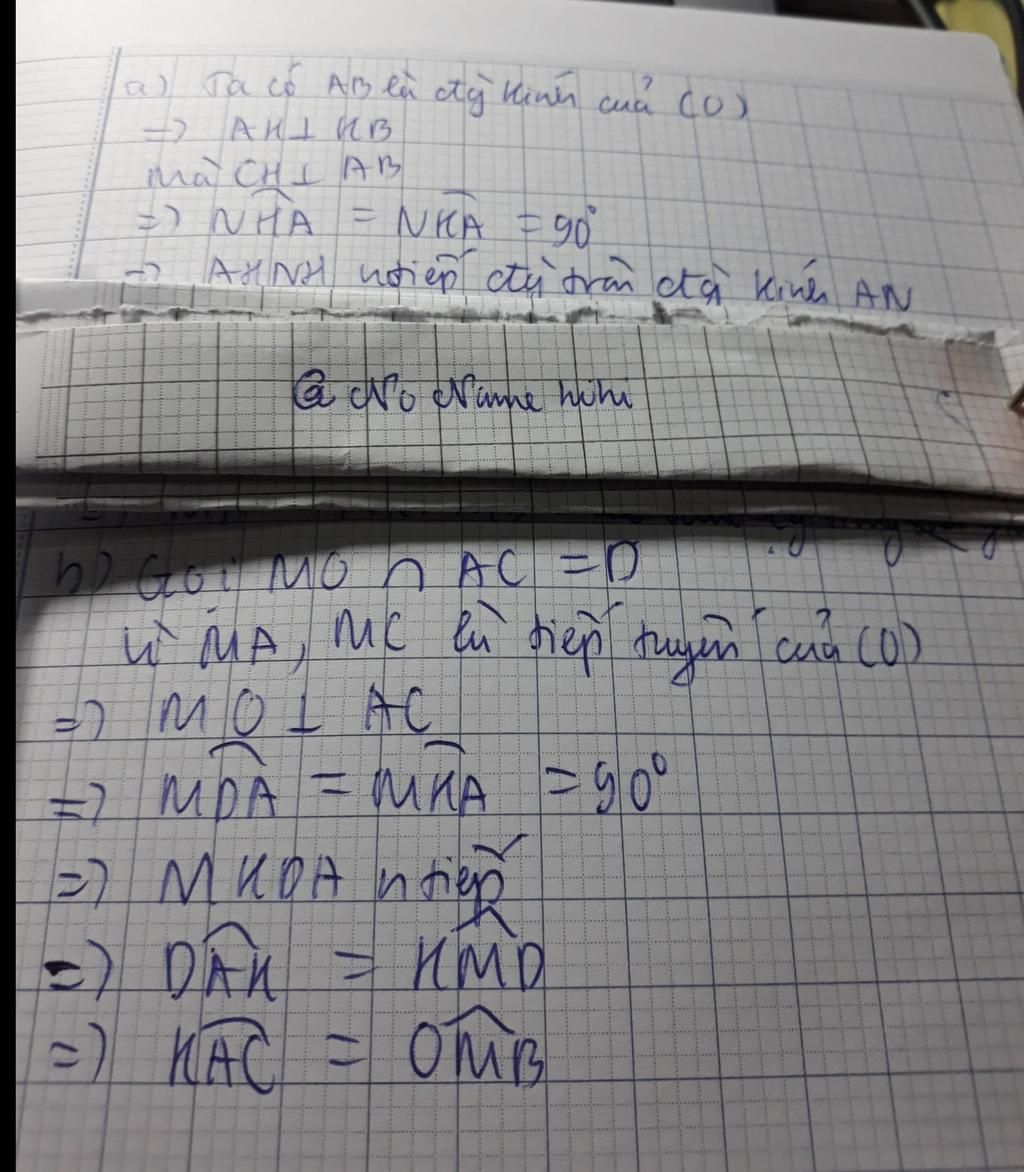 a) Ta có AB là đg kính của (O)
=> AK⊥ KB
mà CH⊥ AB
=> NHA = NKA = 90°
=> AKNH ntiếp đg tròn đg kính AN
@ No Name hihi
b) Gọi MO ∩ AC = D
Vì MA, MC là tiếp tuyến của (O)
=> MO ⊥ AC
=> MDA = MKA = 90°
=> MKDA ntiếp
=> DAK = KMD
=> KAC = OMB